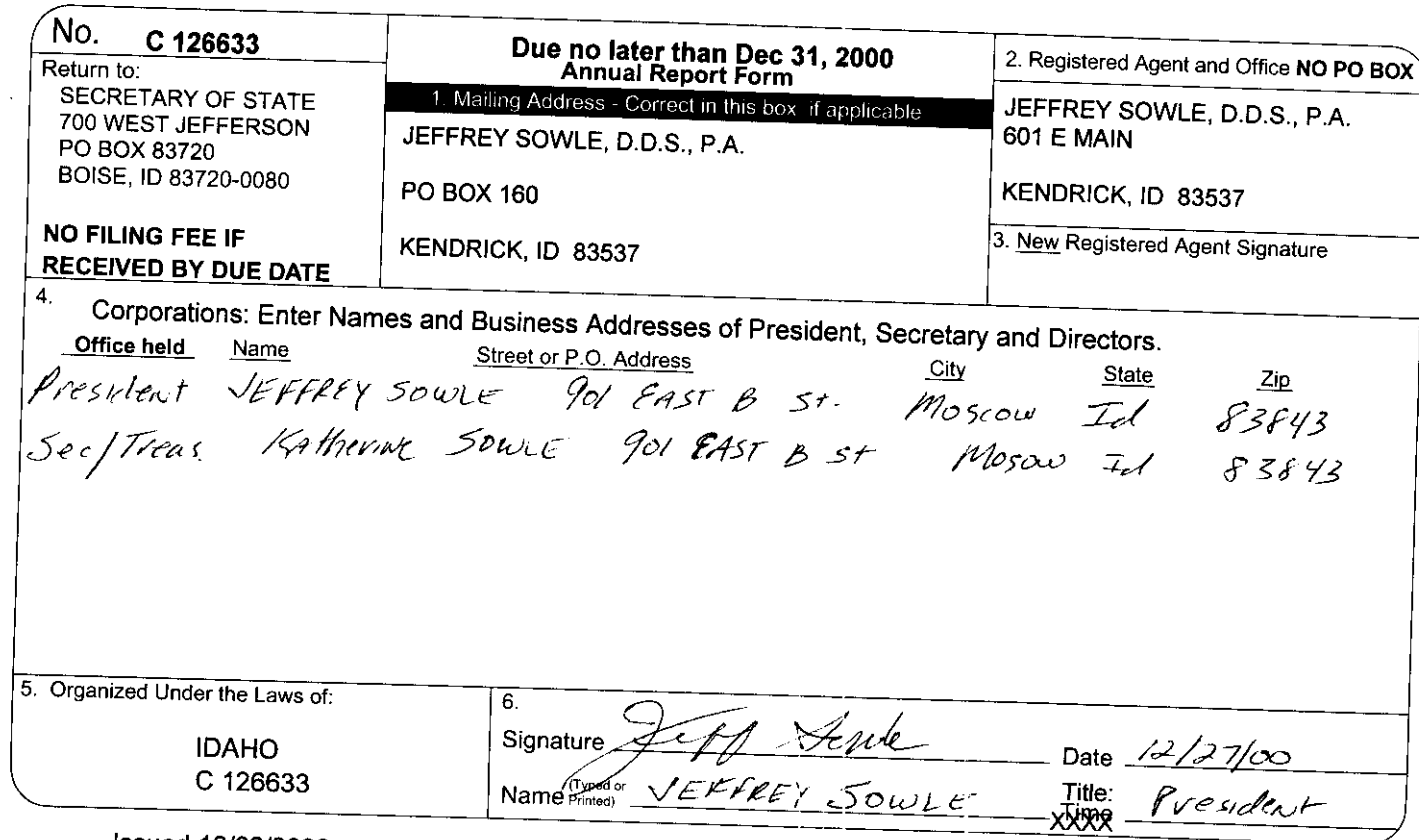 No. C 126633
Return to:
SECRETARY OF STATE
700 WEST JEFFERSON
PO BOX 83720
BOISE, ID 83720-0080
NO FILING FEE IF
RECEIVED BY DUE DATE
Due no later than Dec 31, 2000
Annual Report Form
1. Mailing Address - Correct in this box if applicable
JEFFREY SOWLE, D.D.S., P.A.
PO BOX 160
KENDRICK, ID 83537
2. Registered Agent and Office NO PO BOX
JEFFREY SOWLE, D.D.S., P.A.
601 E MAIN
KENDRICK, ID 83537
3. New Registered Agent Signature
4. Corporations: Enter Names and Business Addresses of President, Secretary and Directors.
Office held Name Street or P.O. Address City State Zip
President JEFFREY SOWLE 901 EAST B St. Moscow Id 83843
Sec/Treas. Katherine SOWLE 901 EAST B St Mosow Id 83843
5. Organized Under the Laws of:
IDAHO
C 126633
6.
Signature Jeff Sowle Date 12/27/00
Name (Typed or Printed) JEFFREY SOWLE Title: President